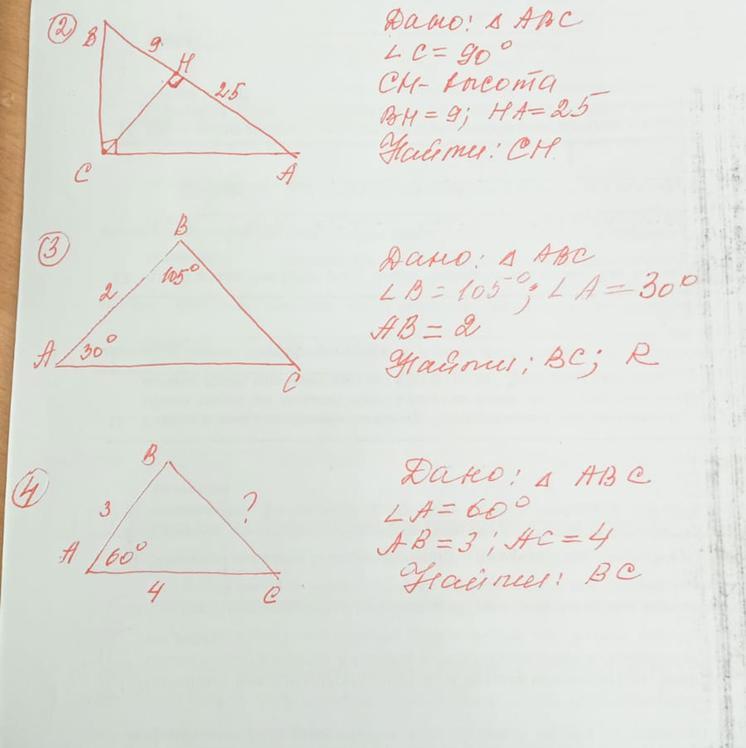 2
B
9
H
25
C
A
Дано: Δ ABC
∠C = 90°
CH - высота
BH = 9; HA = 25
Найти: CH.
3
B
105°
2
A
30°
C
Дано: Δ ABC
∠B = 105°; ∠A = 30°
AB = 2
Найти; BC; R
4
B
3
?
A
60°
4
C
Дано: Δ ABC
∠A = 60°
AB = 3; AC = 4
Найти: BC